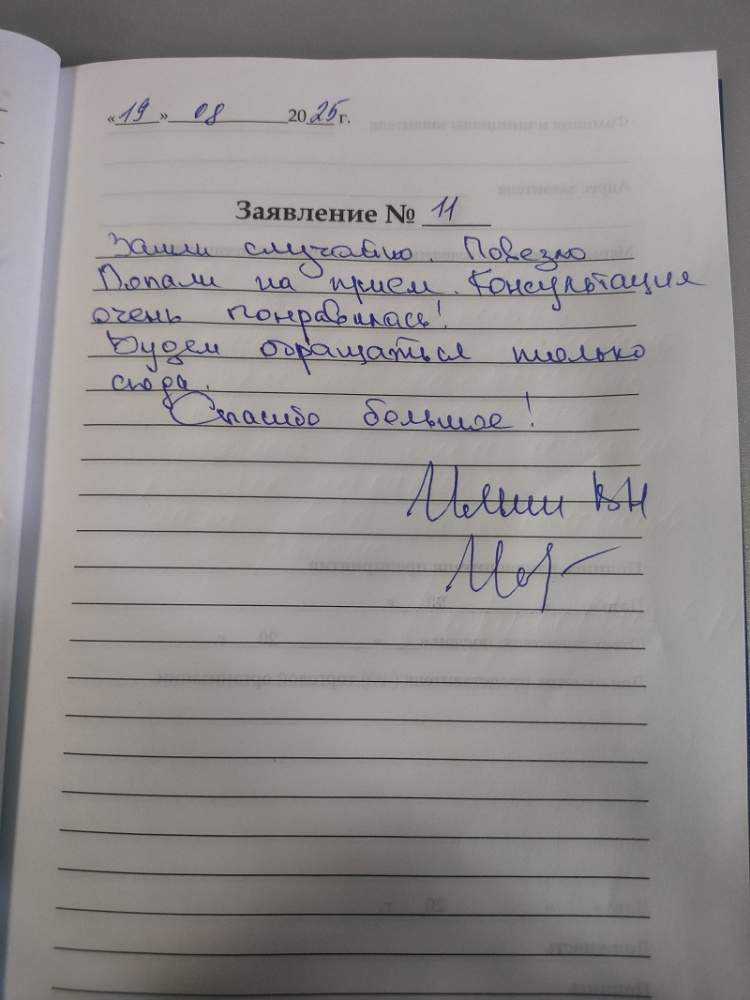 «19» 08 2025 г.
Заявление № 11
Зашли случайно. Повезло
Попали на прием. Консультация
очень понравилась!
Будем обращаться только
сюда.
Спасибо большое!
ВН